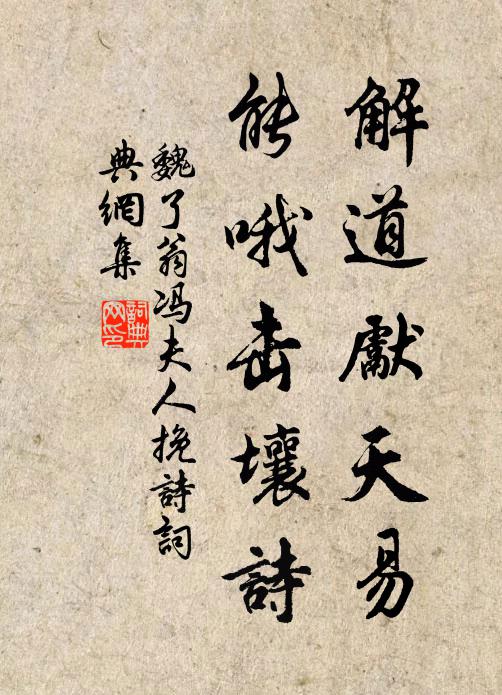 解道獻天易
能哦击壤詩
魏了翁冯夫人挽詩詞
典網集
詞典网印